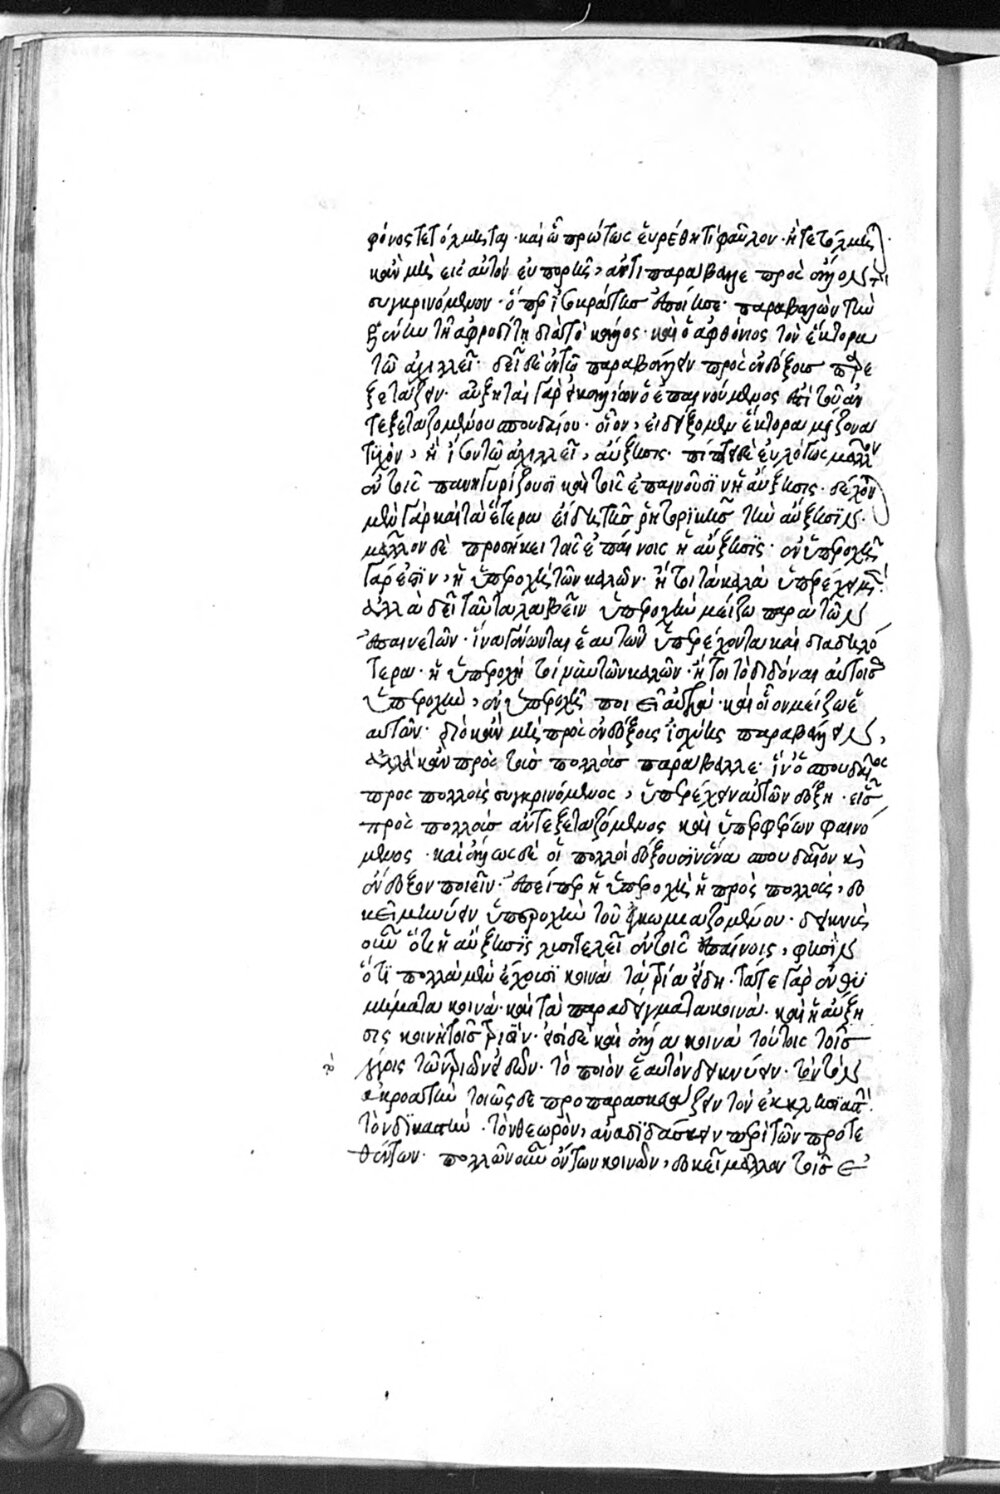 φόνος τετόλμηται · καὶ ᾧ πρώτως εὑρέθη τὶ φαῦλον · ἢ τετόλμηται ·
κἂν μὴ εἰς αὐτὸν εὐπορῇς, ἀντιπαράβαλλε πρὸς ἄλλον
συγκρινόμενον · ὅπερ ἰσοκράτης ἐποίησε · παραβαλὼν τὴν
ἑλένην τῇ ἀφροδίτῃ διὰ τὸ κάλλος · καὶ ὁ ἀφθόνιος τὸν ἕκτορα
τῷ ἀχιλλεῖ · δεῖ δὲ ἐν τῷ παραβάλλειν πρὸς ἐνδόξους
ἐξετάζειν · αὔξηται γὰρ ὁ ἐπαινούμενος ἐπὶ τοῦ ἀν
τεξεταζομένου σπουδαίου · οἷον, εἰ δείξομεν ἕκτορα μείζονα
τυχὸν, ἢ ἴσον τῷ ἀχιλλεῖ, αὔξησις · πίπτει δὲ εὐλόγως μᾶλλον
ἐν τοῖς πανηγυρίζουσι καὶ τοῖς ἐπαινοῦσιν ἡ αὔξησις · δέχονται
μὲν γὰρ καὶ τὰ ἕτερα εἴδη τῆς ῥητορικῆς τὴν αὔξησιν ·
μᾶλλον δὲ προσήκει τοῖς ἐπαίνοις ἡ αὔξησις · ἐν ὑπεροχῇ
γάρ ἐστιν, ἡ ὑπεροχὴ τῶν καλῶν · ἤτοι τὰ καλὰ ὑπερέχειν ·
ἀλλὰ δεῖ ταῦτα λαβεῖν ὑπεροχὴν μείζω παρὰ τῶν
ἐπαινετῶν · ἵνα γένωνται ἑαυτῶν ὑπερέχοντα καὶ διαδηλό
τερα · ἡ ὑπεροχὴ τοίνυν τῶν καλῶν · ἤτοι τὸ διδόναι αὐτοῖς
ὑπεροχὴν, ἐν ὑπεροχῇ ποιεῖ αὐτὰ · καὶ οἷον μείζω ἑ
αυτῶν · διὸ κἂν μὴ πρὸς ἐνδόξους ἰσχύῃς παραβάλλειν,
ἀλλὰ κἂν πρὸς τοὺς πολλοὺς παράβαλλε · ἵν' ὁ σπουδαῖος
προς πολλοὺς συγκρινόμενος, ὑπερέχειν αὐτῶν δόξῃ · εἰς
πρὸς πολλοὺς ἀντεξεταζόμενος καὶ ὑπερφέρων φαινό
μενος · καὶ ἄλλως δὲ οἱ πολλοὶ δόξουσιν ἕνα σπουδαῖον καὶ
ἔνδοξον ποιεῖν · ἐπείπερ ἡ ὑπεροχὴ ἡ πρὸς πολλοὺς, δο
κεῖ μηνύειν ὑπεροχὴν τοῦ ἐγκωμιαζομένου · δείκνυς
οὖν ὅτι ἡ αὔξησις λυσιτελεῖ ἐν τοῖς ἐπαίνοις, φησὶν
ὅτι πολλὰ μὲν ἔχουσι κοινὰ τὰ τρία εἴδη · τά τε γὰρ ἐνθυ
μήματα κοινὰ · καὶ τὰ παραδείγματα κοινὰ · καὶ ἡ αὔξη
σις κοινὴ τοῖς τρισίν · εἰσὶ δὲ καὶ ἄλλα κοινὰ τούτοις τοῖς
λόγοις τῶν τριῶν εἰδῶν · τὸ ποιὸν ἑαυτὸν δεικνύειν · τὸν τὸν
ἀκροατὴν τοιῶσδε προπαρασκευάζειν τὸν ἐκκλησιαστὴν ·
τὸν δικαστὴν · τὸν θεωρὸν, ἀναδιδάσκειν περὶ τῶν προτε
θέντων · πολλῶν οὖν ὄντων κοινῶν, δοκεῖ μᾶλλον τοῖς ἐ